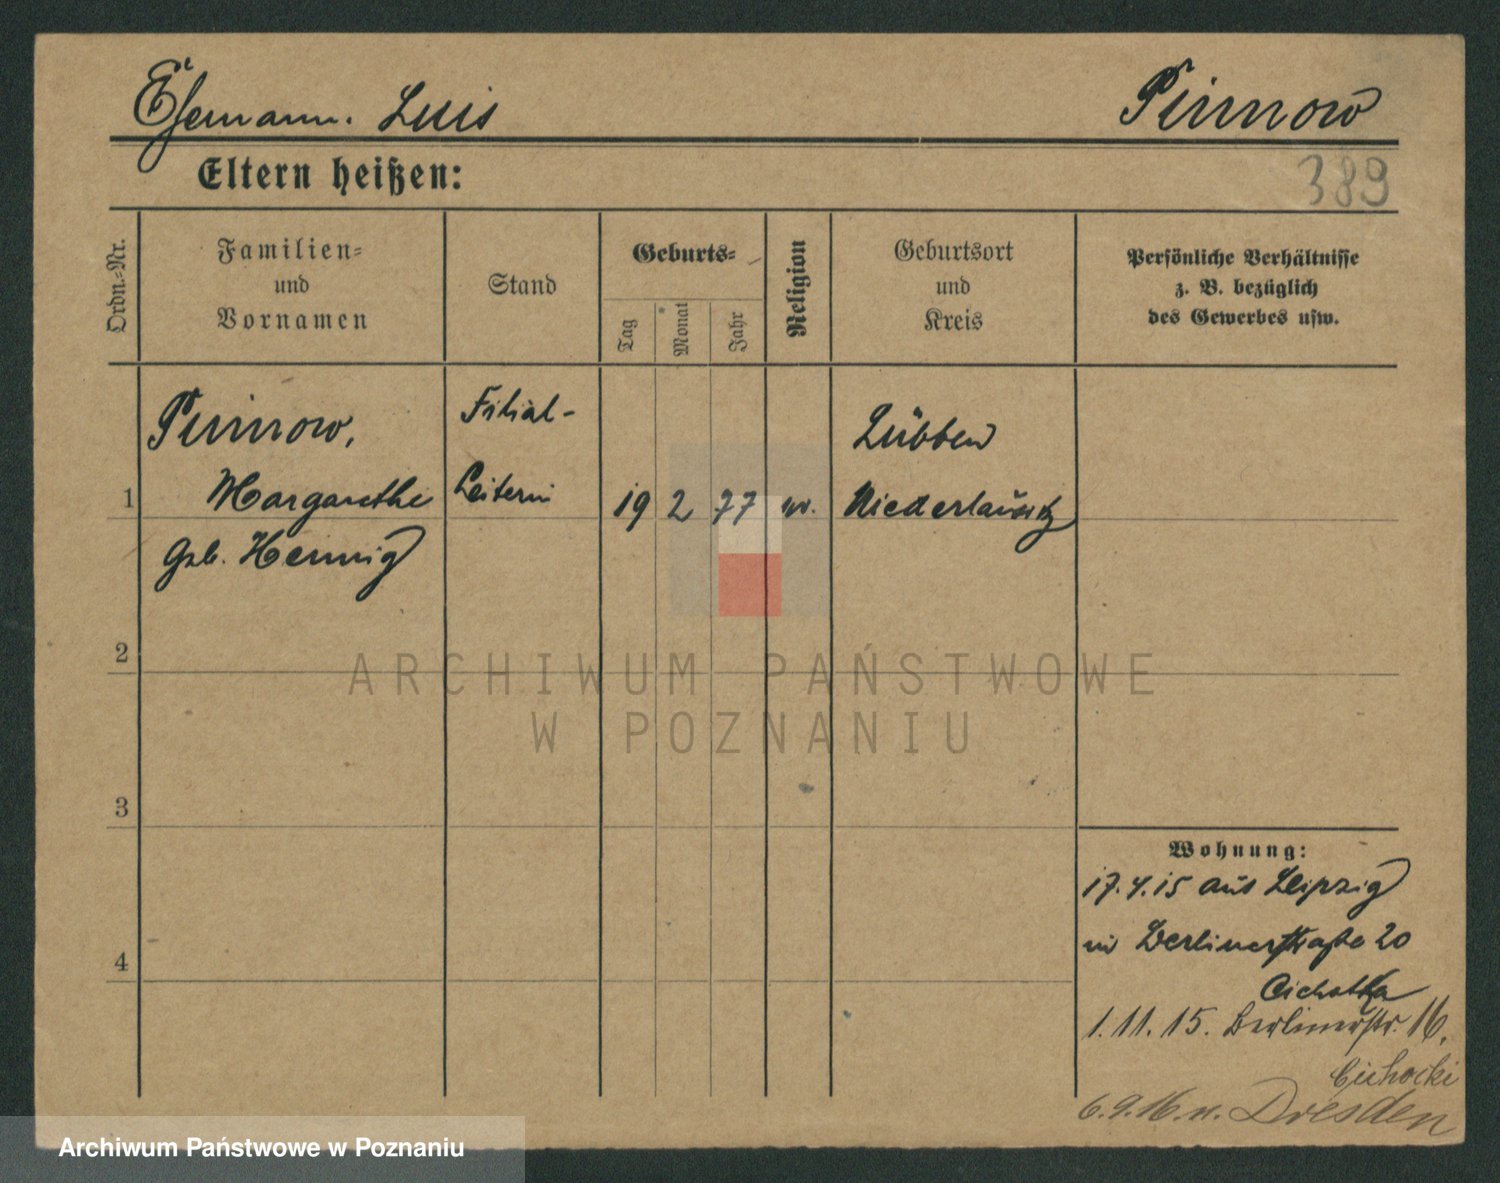 Ehemann. Luis
Pinnow
Eltern heißen:
389
Ordn.-Nr.
Familien-
und
Vornamen
Stand
Geburts-
Tag
Monat
Jahr
Religion
Geburtsort
und
Kreis
Persönliche Verhältnisse
z. B. bezüglich
des Gewerbes usw.
Pinnow,
Margarethe
geb. Hennig
Filial-
Leiterin
1
19 2 77
Lübben
Niederlausitz
2
3
4
Wohnung:
17.4.15 aus Leipzig
in Berlinerstraße 20
1.11.15. Berlinerstr. 16.
Cichocki
6.9.16. n. Dresden
ARCHIWUM PAŃSTWOWE
W POZNANIU
Archiwum Państwowe w Poznaniu